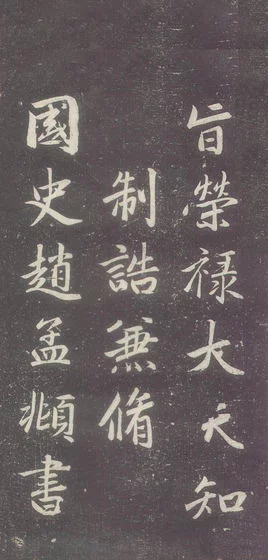 旨榮祿大夫知
制誥兼脩
國史趙孟頫書